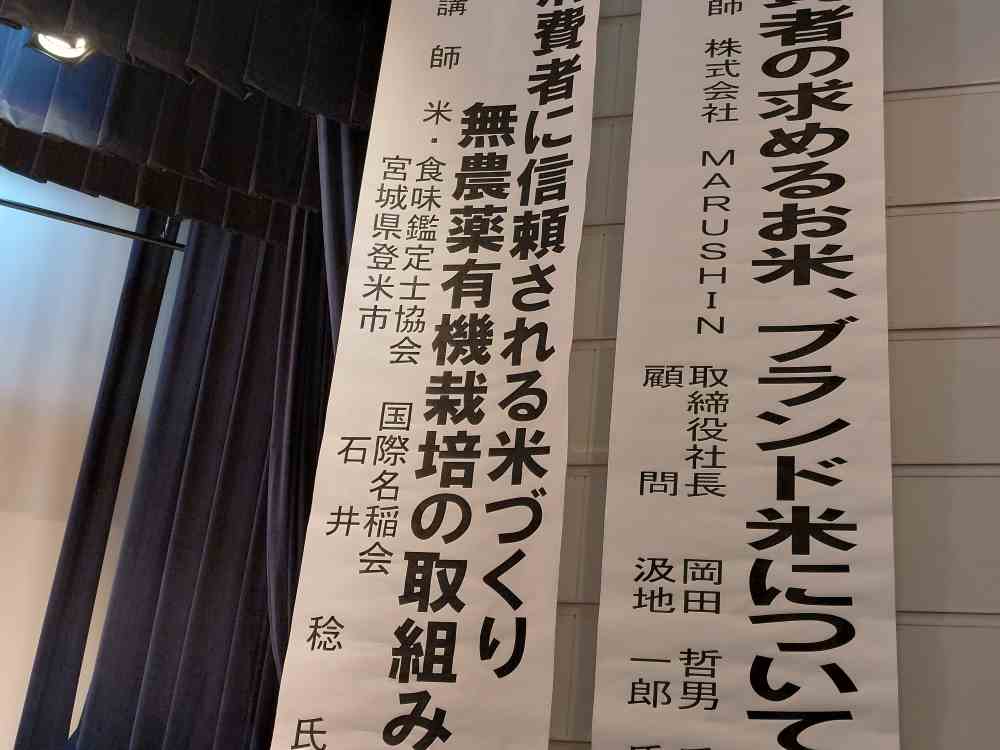 者の求めるお米、ブランド米について
師 株式会社 MARUSHIN 取締役社長 岡田 哲男
顧問 汲地 一郎
消費者に信頼される米づくり
無農薬有機栽培の取組み
講師 米・食味鑑定士協会 国際名稲会
宮城県登米市 石井 稔 氏